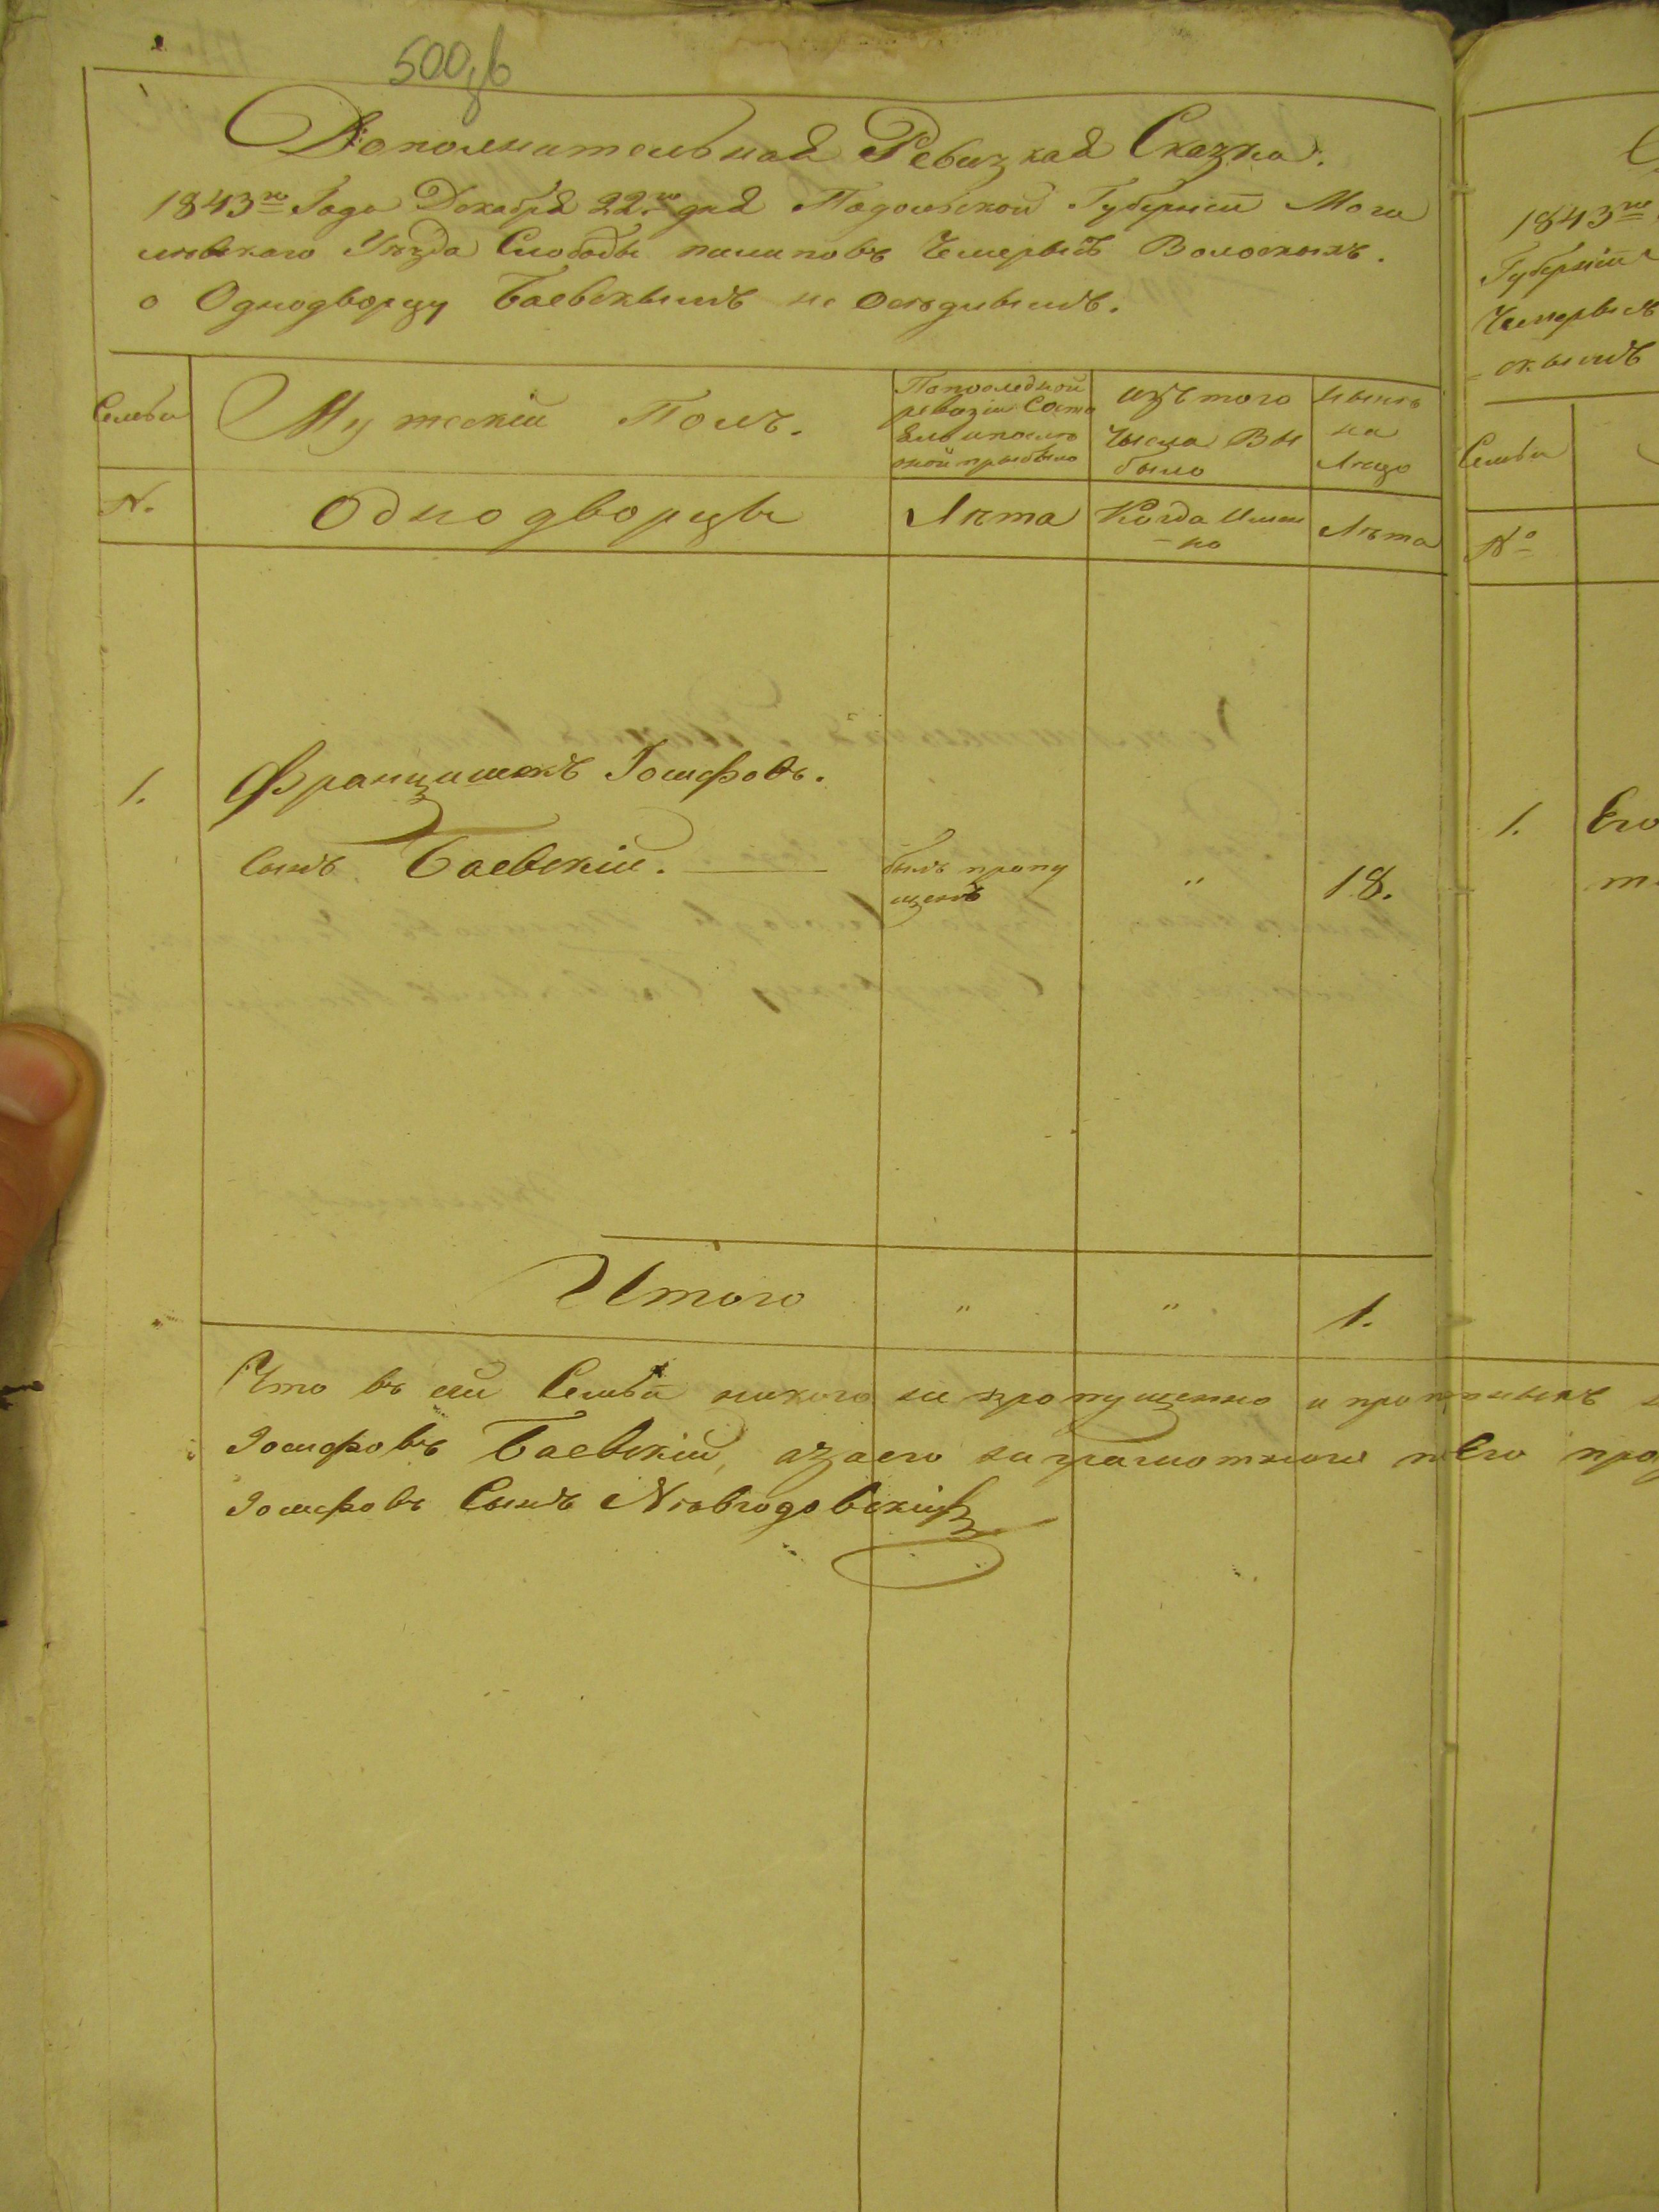 500 зв
Дополнительная Ревизкая Сказка.
1843го Года Декабря 22го дня Подольской Губерніи Моги
левскаго Уезда Слободы пилиповъ Чемерысъ Волоскыхъ.
о Однодворцу Баевскымъ не оседлымъ.
Семьи
Мужескій Полъ.
По последной
ревизіи Состо
ялъ и после
оной прыбыло
изъ того
Чысла Вы
было
ныне
на
Лицо
№.
Однодворцы
Лета
Когда Имен
но
Лета
1.
Францишекъ Іосифовъ.
Сынъ Баевскій.
былъ пропу
щенъ
"
18.
Итого
"
"
1.
Что въ сей Семьи никого не пропущенно и
Іосифовъ Баевскій, а за его неграмотного
Іосифовъ Сынъ
1843го
Губерніи
Чемерысъ
скымъ
Семьи
№
1.
Его